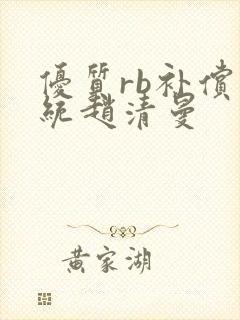 優質rb补償
統趙清曼
黃家湖